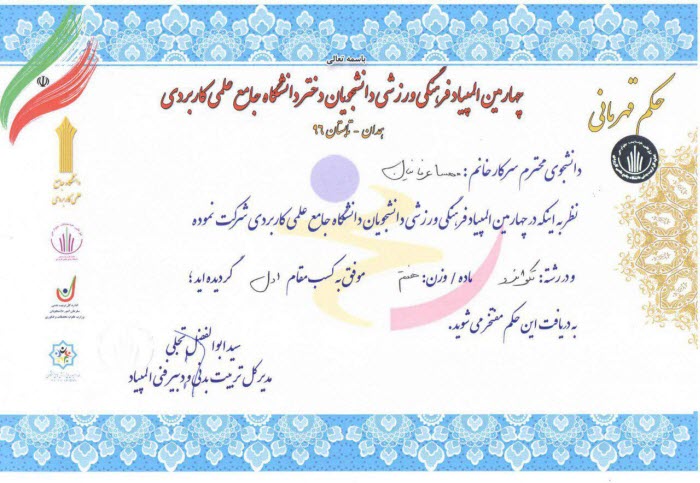 باسمه تعالی
چهارمین المپیاد فرهنگی ورزشی دانشجویان دختر دانشگاه جامع علمی کاربردی
حکم قهرمانی
تابستان ۹۶
دانشگاه جامع
علمی کاربردی
دانشجوی محترم سرکار خانم :
نظر به اینکه در چهارمین المپیاد فرهنگی ورزشی دانشجویان دانشگاه جامع علمی کاربردی شرکت نموده
و در رشته: تکواندو ماده / وزن: هفتم موفق به کسب مقام اول گردیده اید ؛
به دریافت این حکم مفتخر می شوید.
سید ابوالفضل تجلی
مدیر کل تربیت بدنی و دبیر فنی المپیاد